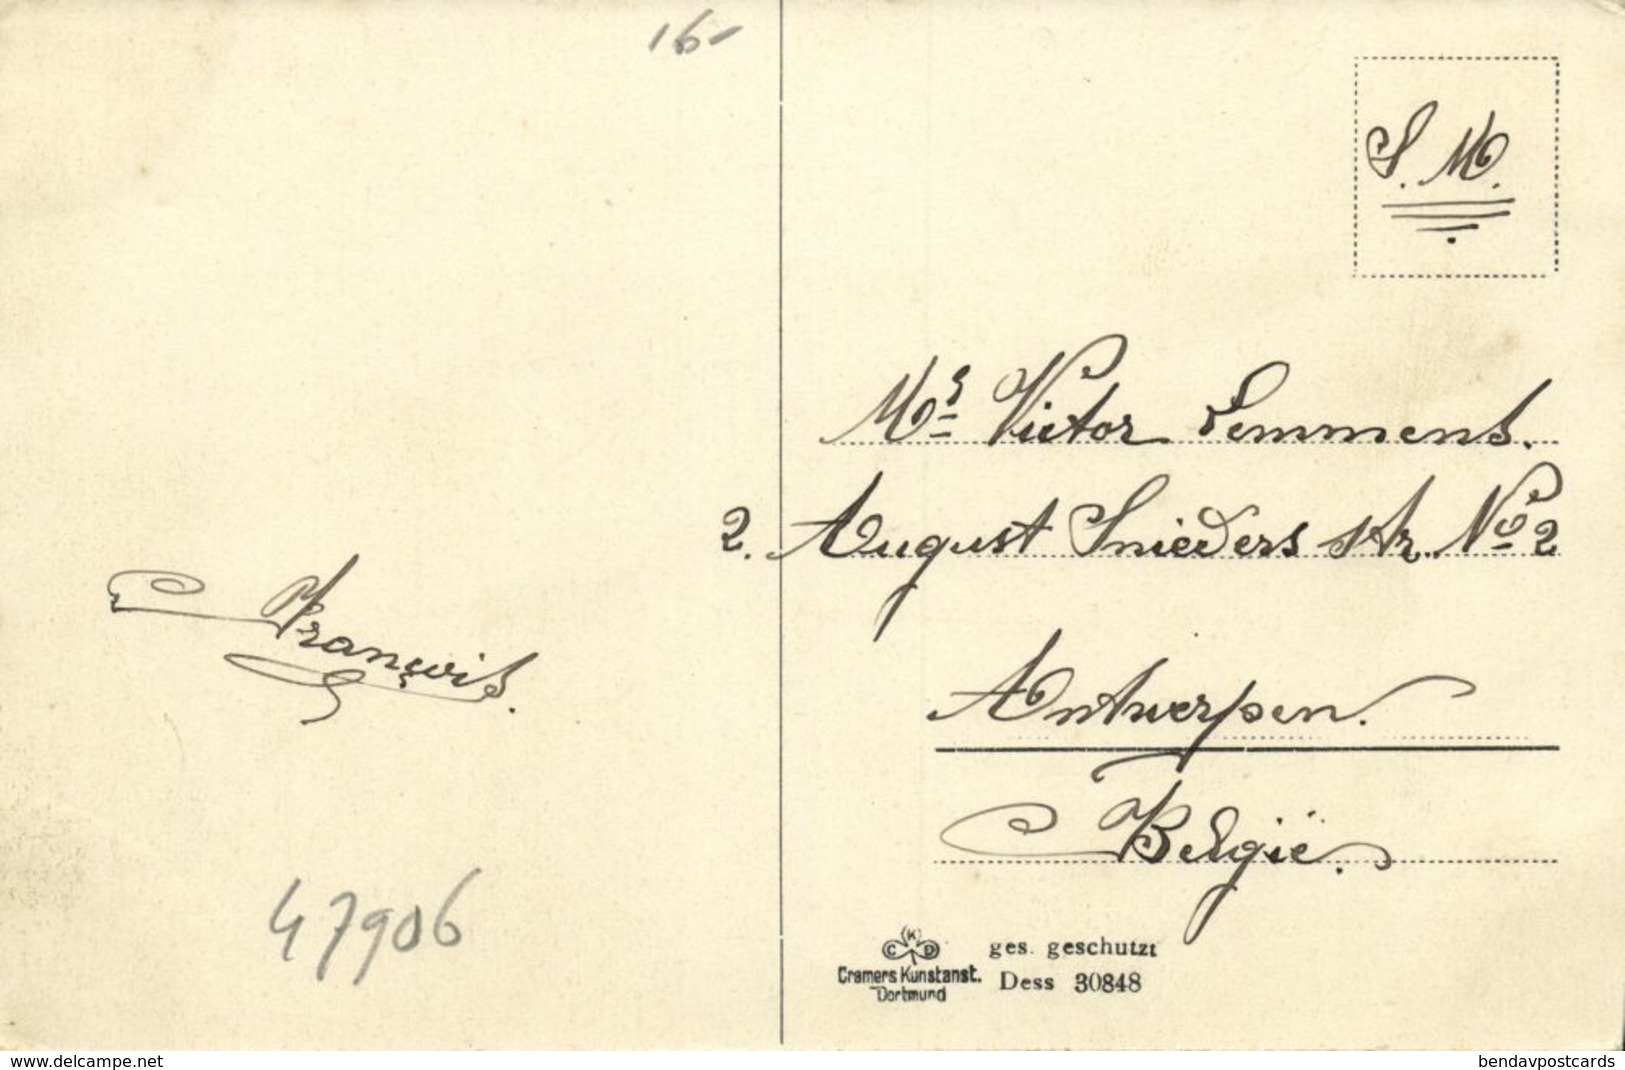 16-
S. M.
Mr Victor Lemmens.
2. August Snieders str. No 2
Antwerpen.
België.
François.
47906
CKD
Cramers Kunstanst.
Dortmund
ges. geschutzt
Dess 30848
www.delcampe.net
bendavpostcards